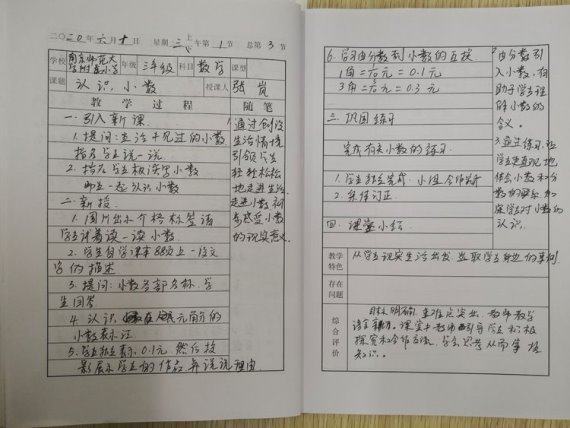 二〇二〇年 六月十日 星期三 上午第1节 总第3节
学校 南京师范大学附属小学 年级 三年级 科目 数学 课型
课题 认识小数 授课人 张岚
教学过程 随笔
一. 引入新课.
1. 提问:生活中见过的小数
指名学生说一说.
2. 指名学生板读写小数
师生一起认识小数
二. 新授.
1. 图片出示个价格标签请
学生试着读一读小数.
2. 学生自学课本88页上一段文
字的描述
3. 提问:小数各部名称.学
生回答
4. 认识元角分的
小数表示
5. 学生独立表示0.1元 然后投
影展示学生的作品,并说说理由
通过创设
生活情境
引领学生
轻轻松松
地走进生活
走进小数初
步感受小数
的现实意义.
6. 学习由分数到小数的互换
1角=1/10元=0.1元
3角=3/10元=0.3元
三. 巩固练习
完成有关小数的练习.
1. 学生独立完成.小组合作交流
2. 集体订正.
四. 课堂小结.
由分数引
入小数,有
助于学生理
解小数的
含义.
通过练习,让
学生更直观地
体会小数和分
数的联系,加
深学生对小数的
认识.
教学特色 从学生现实生活出发,选取学生身边的事例.
存在问题
综合评价
目标明确,重难点突出,教师教学
语言精,课堂中教师引导学生积极
探究和合作方法,学会思考从而掌握
知识.